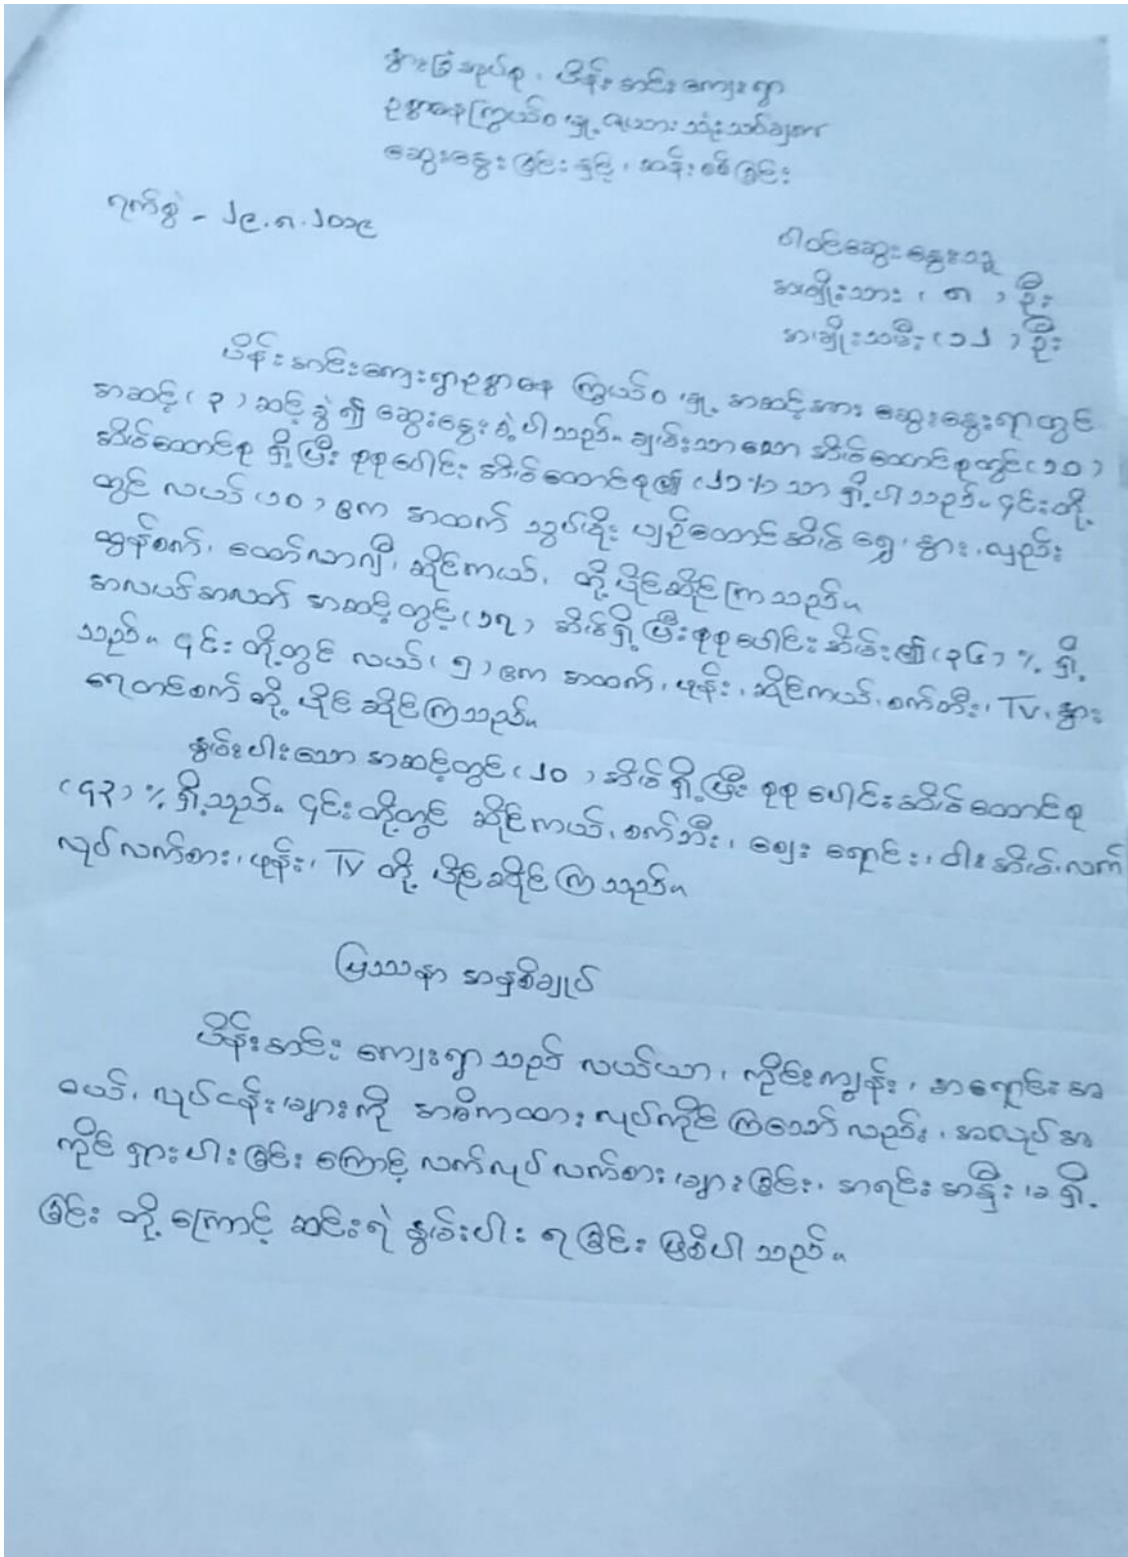 နွားခြံအုပ်စု၊ ပိန်းအင်းကျေးရွာ
ဥစ္စာဓနကြွယ်ဝမှု့ ဇယားသုံးသပ်ချက်
ဆွေးနွေးခြင်းနှင့်၊ ဆန်းစစ်ခြင်း
ရက်စွဲ - ၂၉.၈.၂၀၁၉
ပါဝင်ဆွေးနွေးသူ
အမျိုးသား ( ၈ ) ဦး
အမျိုးသမီး (၁၂ ) ဦး
ပိန်းအင်းကျေးရွာဥစ္စာဓန ကြွယ်ဝမှု့ အဆင့်အား ဆွေးနွေးရာတွင်
အဆင့် ( ၃ ) ဆင့်ခွဲ၍ ဆွေးနွေးခဲ့ပါသည်။ ချမ်းသာသော အိမ်ထောင်စုတွင် (၁၀)
အိမ်ထောင်စု ရှိ့ပြီး စုစုပေါင်း အိမ်ထောင်စု၏ (၂၁%) သာ ရှိ့ပါသည်။ ၎င်းတို့
တွင် လယ် (၁၀) ဧက အထက် သွပ်မိုး ပျဉ်ထောင်အိမ် ရွှေ၊ နွား၊ လှည်း
ထွန်စက်၊ ထော်လာဂျီ၊ ဆိုင်ကယ်၊ တို့ပိုင်ဆိုင်ကြသည်။
အလယ်အလတ် အဆင့်တွင့် (၁၇) အိမ်ရှိ့ပြီး စုစုပေါင်းအိမ်း၏ (၃၆) % ရှိ့
သည်။ ၎င်းတို့တွင် လယ် ( ၅ ) ဧက အထက်၊ ဖုန်း၊ ဆိုင်ကယ်၊ စက်ဘီး၊ TV၊ နွား
ရေတင်စက် တို့ ပိုင်ဆိုင်ကြသည်။
နွမ်းပါးသော အဆင့်တွင် (၂၀ ) အိမ်ရှိ့ပြီး စုစုပေါင်းအိမ်ထောင်စု
(၄၃) % ရှိ့သည်။ ၎င်းတို့တွင် ဆိုင်ကယ်၊ စက်ဘီး၊ ဈေးရောင်း၊ ဝါးအိမ်၊ လက်
လုပ်လက်စား၊ ဖုန်း၊ TV တို့ ပိုင်ဆိုင်ကြသည်။
ပြဿနာ အနှစ်ချုပ်
ပိန်းအင်း ကျေးရွာသည် လယ်ယာ၊ ကိုင်းကျွန်း၊ အရောင်းအ
ဝယ်၊ လုပ်ငန်းများကို အဓိကထား လုပ်ကိုင်ကြသော်လည်း၊ အလုပ်အ
ကိုင် ရှားပါးခြင်းကြောင့် လက်လုပ်လက်စားများခြင်း၊ အရင်းအနှီးမရှိ့
ခြင်း တို့ကြောင့် ဆင်းရဲနွမ်းပါးရခြင်း ဖြစ်ပါသည်။